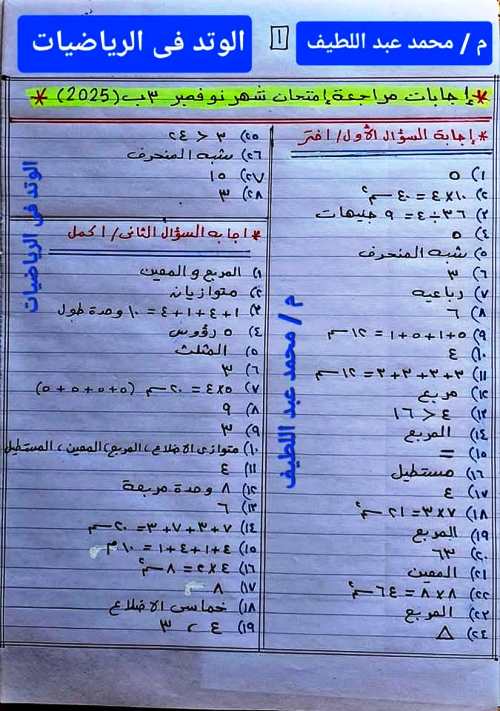 م / محمد عبد اللطيف
١
الوتد فى الرياضيات
* إجابات مراجعة إمتحان شهر نوفمبر ٣ب (2025) *
* إجابة السؤال الأول / اختر
١) ٥
٢) ١٠×٤ = ٤٠ سم²
٣) ٣٦÷٤ = ٩ جنيهات
٤) ٥
٥) شبه المنحرف
٦) ٣
٧) رباعيه
٨) ٦
٩) ٥+١+٥+١ = ١٢ سم
١٠) ٤
١١) ٣+٣+٣+٣ = ١٢ سم
١٢) مربع
١٣) ٤ < ١٦
١٤) المربع
١٥) =
١٦) مستطيل
١٧) ٤
١٨) ٧×٣ = ٢١ سم²
١٩) المربع
٢٠) ٦٣
٢١) المعين
٢٢) ٨×٨ = ٦٤ سم²
٢٣) المربع
٢٤) △
٢٥) ٣ < ٢٤
٢٦) شبه المنحرف
٢٧) ١٥
٢٨) ٣
* اجابه السؤال الثانى / اكمل
١) المربع و المعين
٢) متوازيان
٣) ١+٤+١+٤ = ١٠ وحدة طول
٤) ٥ رؤوس
٥) المثلث
٦) ٣
٧) ٥×٤ = ٢٠ سم (٥+٥+٥+٥)
٨) ٩
٩) ٣
١٠) متوازى الاضلاع ، المربع ، المعين ، المستطيل
١١) ٤
١٢) ٨ وحدة مربعة
١٣) ٦
١٤) ٣+٧+٣+٧ = ٢٠ سم
١٥) ٤+١+٤+١ = ١٠ م
١٦) ٤×٢ = ٨ سم²
١٧) ٨
١٨) خماسى الاضلاع
١٩) ٤ ، ٣
الوتد فى الرياضيات
م / محمد عبد اللطيف